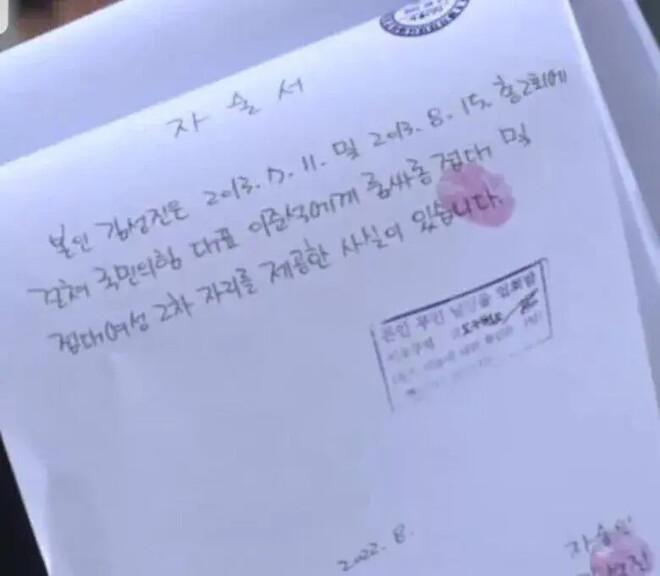 자술서
본인 김성진은 2013. 7. 11. 및 2013. 8. 15. 총 2회에
걸쳐 국민의힘 대표 이준석에게 룸싸롱 접대 및
접대여성 2차 자리를 제공한 사실이 있습니다.
본인 무인
2022. 8.
자술인
성진